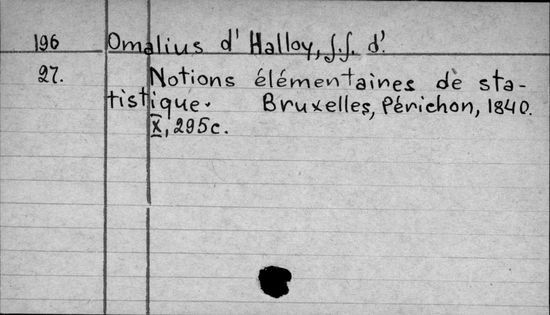 196 Omalius d' Halloy, J.J. d'.
27. Notions élémentaires de sta-
tistique. Bruxelles, Périchon, 1840.
X, 295c.